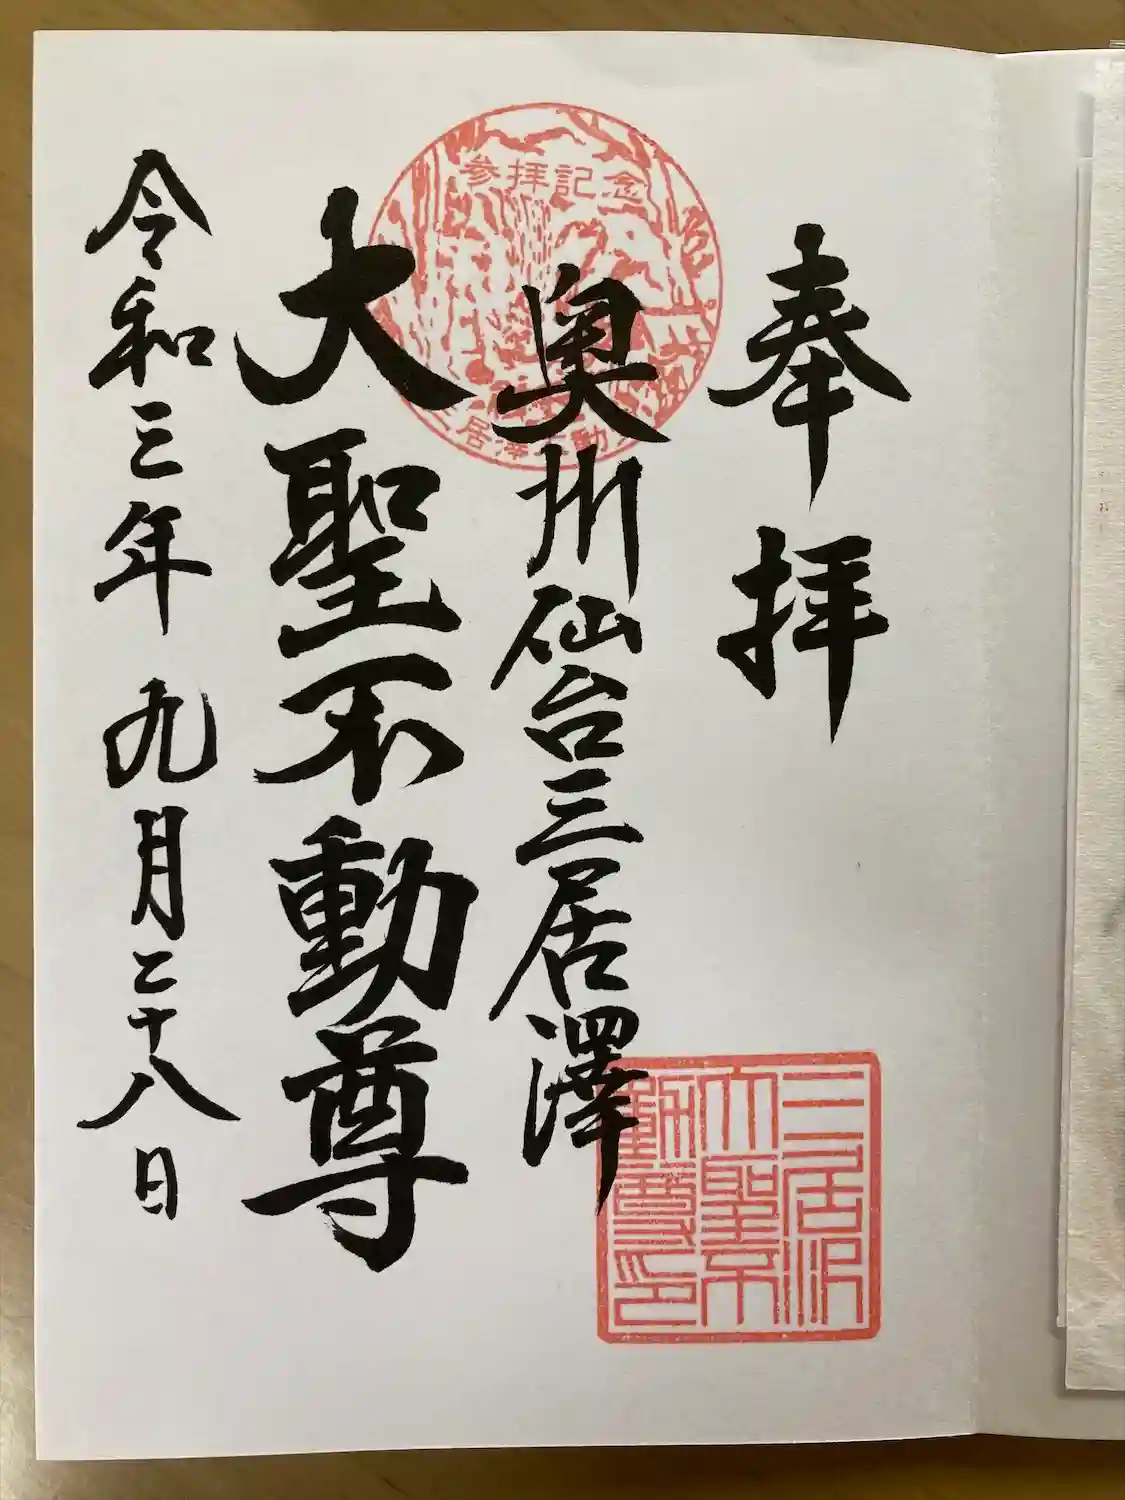 奉拝
奥州仙台三居澤
大聖不動尊
令和三年九月二十八日
参拝記念
三居沢
大聖不
動尊印